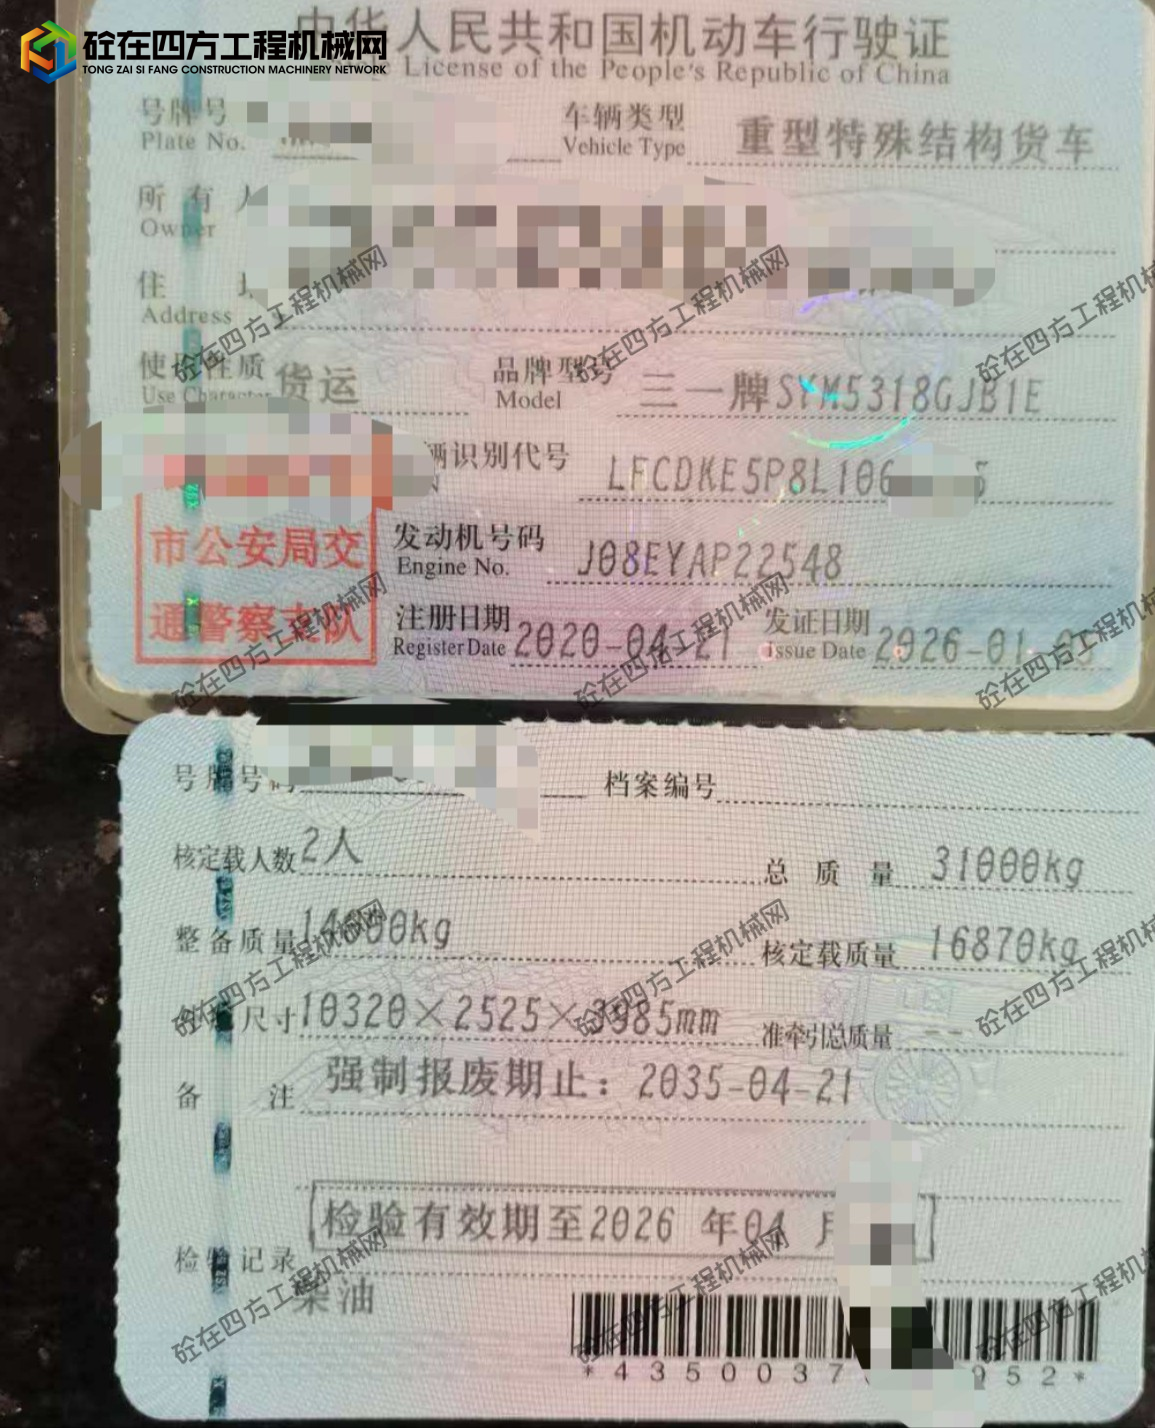 砼在四方工程机械网
TONG ZAI SI FANG CONSTRUCTION MACHINERY NETWORK
中华人民共和国机动车行驶证
License of the People's Republic of China
号牌号
Plate No.
车辆类型 重型特殊结构货车
Vehicle Type
所有人
Owner
住
Address
使用性质 货运
Use Character
品牌型号 三一牌SYM5318GJB1E
Model
辆识别代号 LFCDKE5P8L106
发动机号码 J08EYAP22548
Engine No.
市公安局交
通警察支队
注册日期 2020-04-21
Register Date
发证日期 2026-01-
Issue Date
号牌号
档案编号
核定载人数 2人
总质量 31000kg
整备质量
核定载质量 16870kg
尺寸 10320×2525×3985mm
准牵引总质量 --
备注 强制报废期止：2035-04-21
检验有效期至2026年04月
检验记录
柴油
*4350037 952*
砼在四方工程机械网
砼在四方工程机械网
砼在四方工程机械
砼在四方工程机械网
砼在四方工程机械网
砼在四方工程机械
砼在四方工程机械网
砼在四方工程机械网
砼在四方工程机械
砼在四方工程机械网
砼在四方工程机械网
砼在四方工程机械